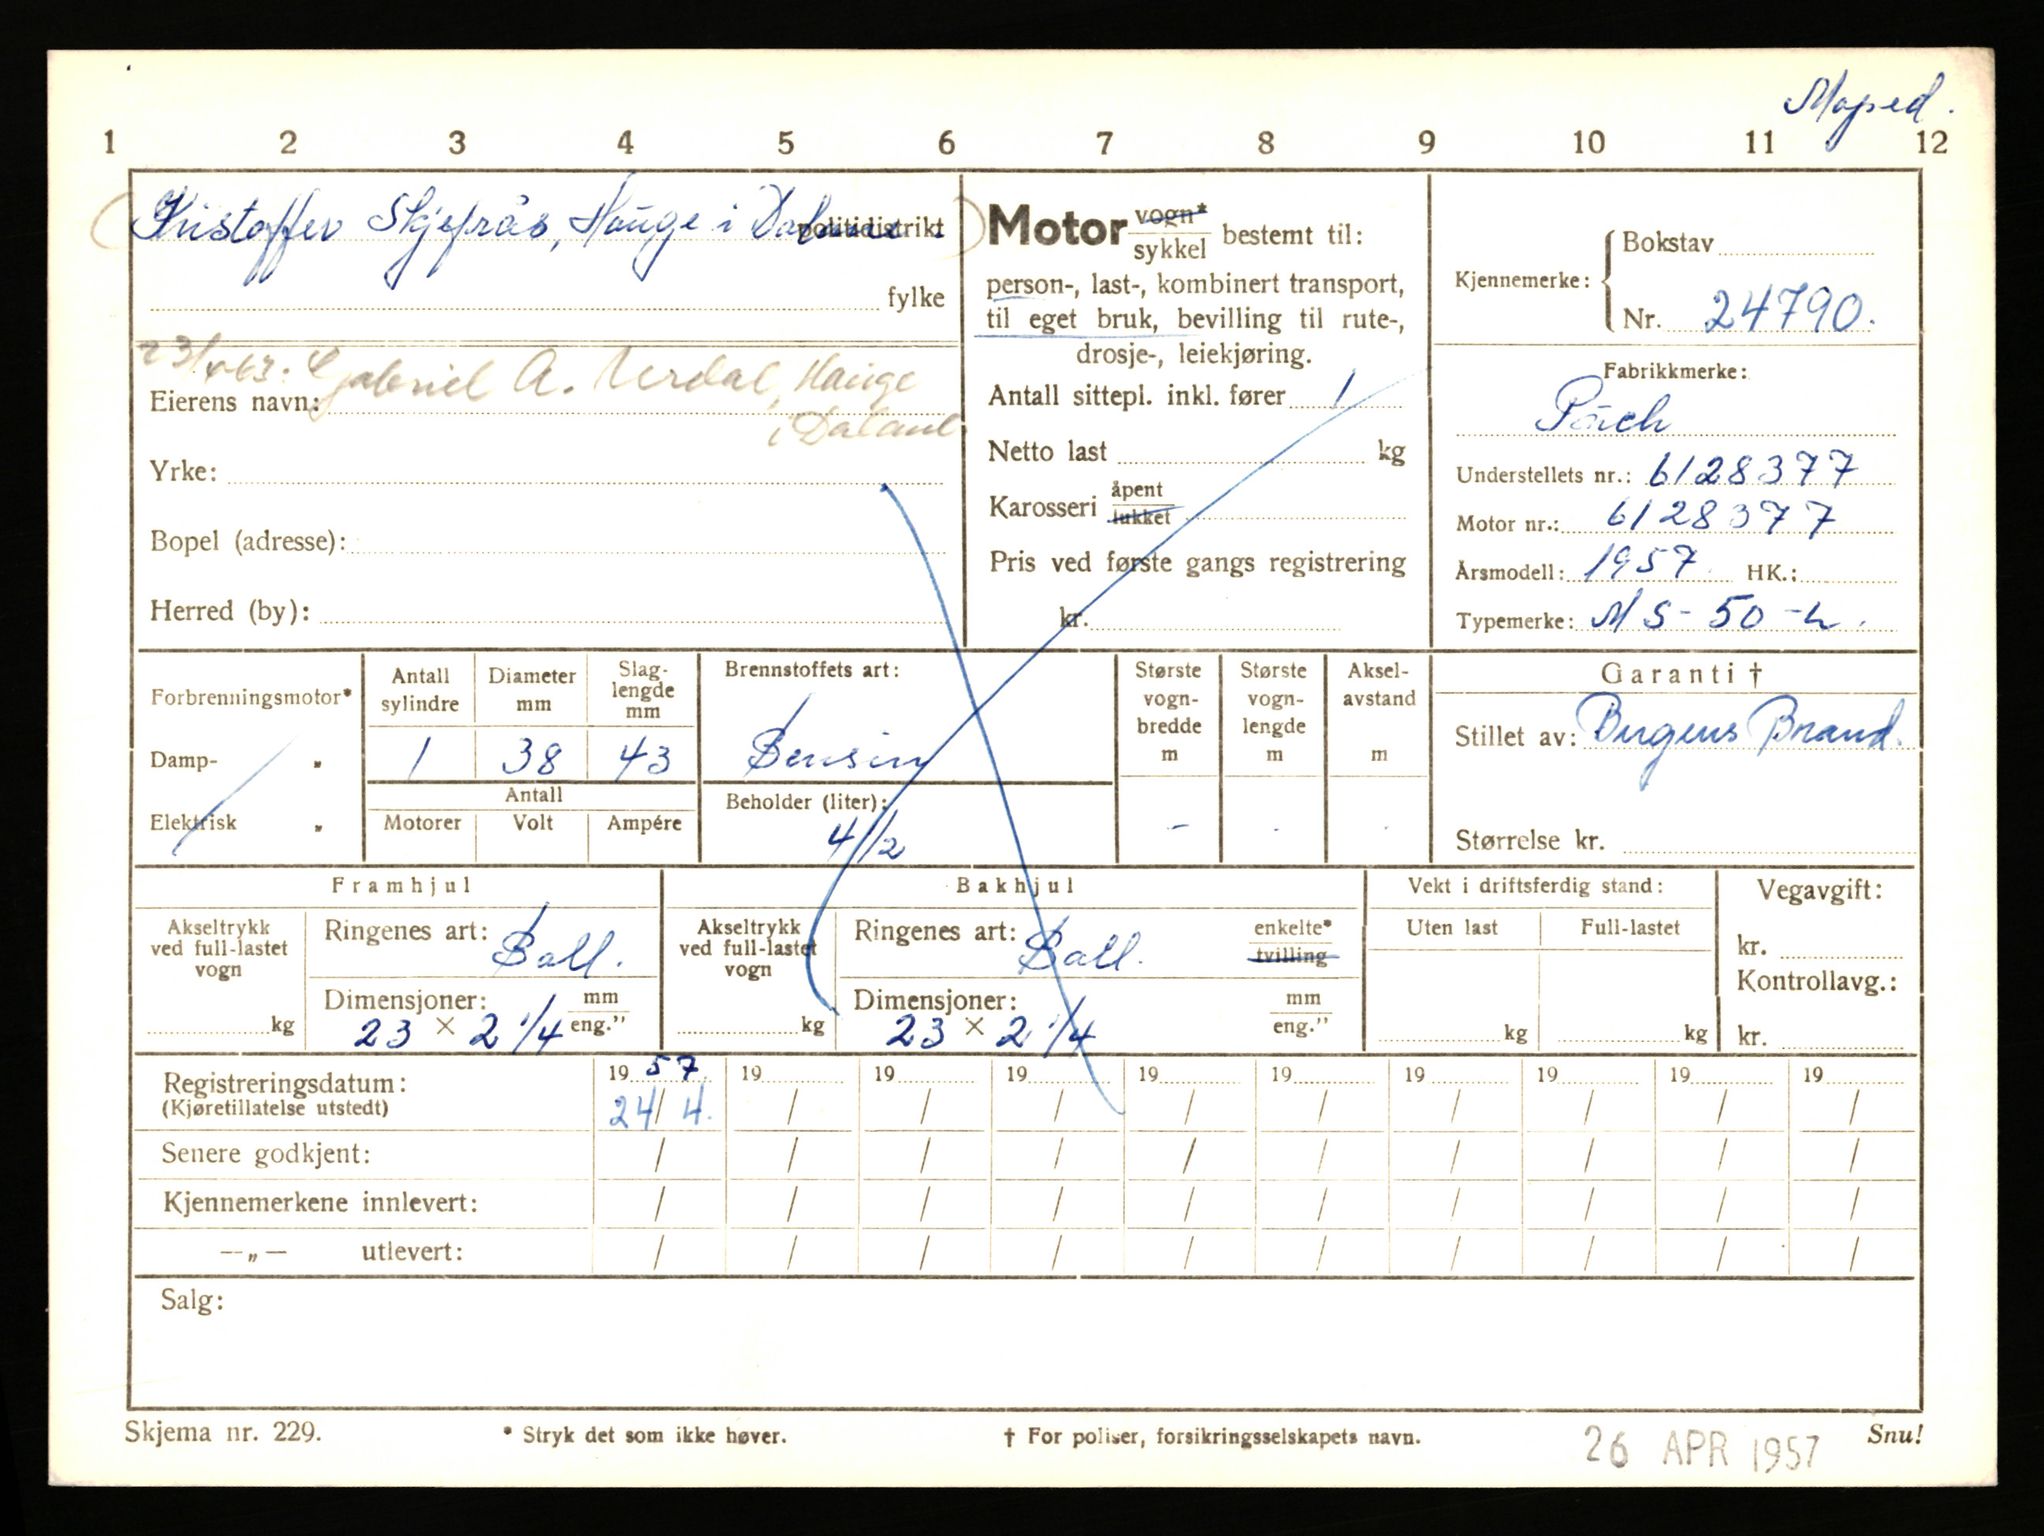 Moped.
1 2 3 4 5 6 7 8 9 10 11 12
Kristoffer Skjefrås, Hauge i Dalane.
politidistrikt
fylke
Gabriel A. Urdal, Hauge
i Daland
Eierens navn:
Yrke:
Bopel (adresse):
Herred (by):
Motor vogn*
sykkel bestemt til:
person-, last-, kombinert transport,
til eget bruk, bevilling til rute-,
drosje-, leiekjøring.
Antall sittepl. inkl. fører 1
Netto last kg
Karosseri åpent
lukket
Pris ved første gangs registrering
kr.
Kjennemerke: Bokstav
Nr. 24790.
Fabrikkmerke:
Püch
Understellets nr.: 6128377
Motor nr.: 6128377
Årsmodell: 1957. HK.:
Typemerke: MS-50-L.
Forbrenningsmotor*
Damp- „
Elektrisk „
Antall
sylindre
1
Diameter
mm
38
Slag-
lengde
mm
43
Antall
Motorer Volt Ampére
Brennstoffets art:
Bensin
Beholder (liter):
4 1/2
Største
vogn-
bredde
m
-
Største
vogn-
lengde
m
Aksel-
avstand
m
Garanti †
Stillet av: Bergens Brand.
Størrelse kr.
Framhjul
Akseltrykk
ved full-lastet
vogn
kg
Ringenes art: Ball.
Dimensjoner: mm
23 × 2 1/4 eng."
Bakhjul
Akseltrykk
ved full-lastet
vogn
kg
Ringenes art: Ball. enkelte*
tvilling
Dimensjoner: mm
23 × 2 1/4 eng."
Vekt i driftsferdig stand:
Uten last Full-lastet
kg kg
Vegavgift:
kr.
Kontrollavg.:
kr.
Registreringsdatum: 19 57 19 19 19 19 19 19 19 19 19
(Kjøretillatelse utstedt) 24/4. / / / / / / / / /
Senere godkjent: / / / / / / / / / /
Kjennemerkene innlevert: / / / / / / / / / /
—„— utlevert: / / / / / / / / / /
Salg:
Skjema nr. 229. * Stryk det som ikke høver. † For poliser, forsikringsselskapets navn. Snu!
26 APR 1957